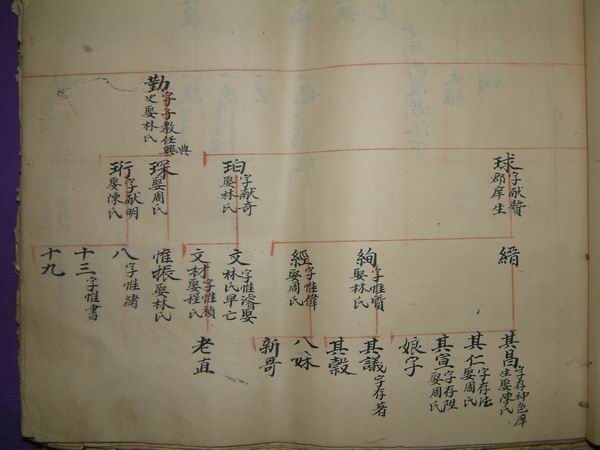 勤 字子敎任興典史娶林氏
球 字献贊郡庠生
珀 字献奇娶林氏
琛 娶周氏
珩 字献明娶陳氏
縉
絢 字惟質娶林氏
經 字惟偉娶周氏
文 字惟濬娶林氏早亡
文材 字惟楨娶程氏
惟振 娶林氏
八 字惟緒
十三 字惟書
十九
其昌 字存 邑庠生娶陳氏
其仁 字存 娶周氏
其宣 字存陞娶周氏
娘字
其議 字存著
其穀
八妹
新哥
老直